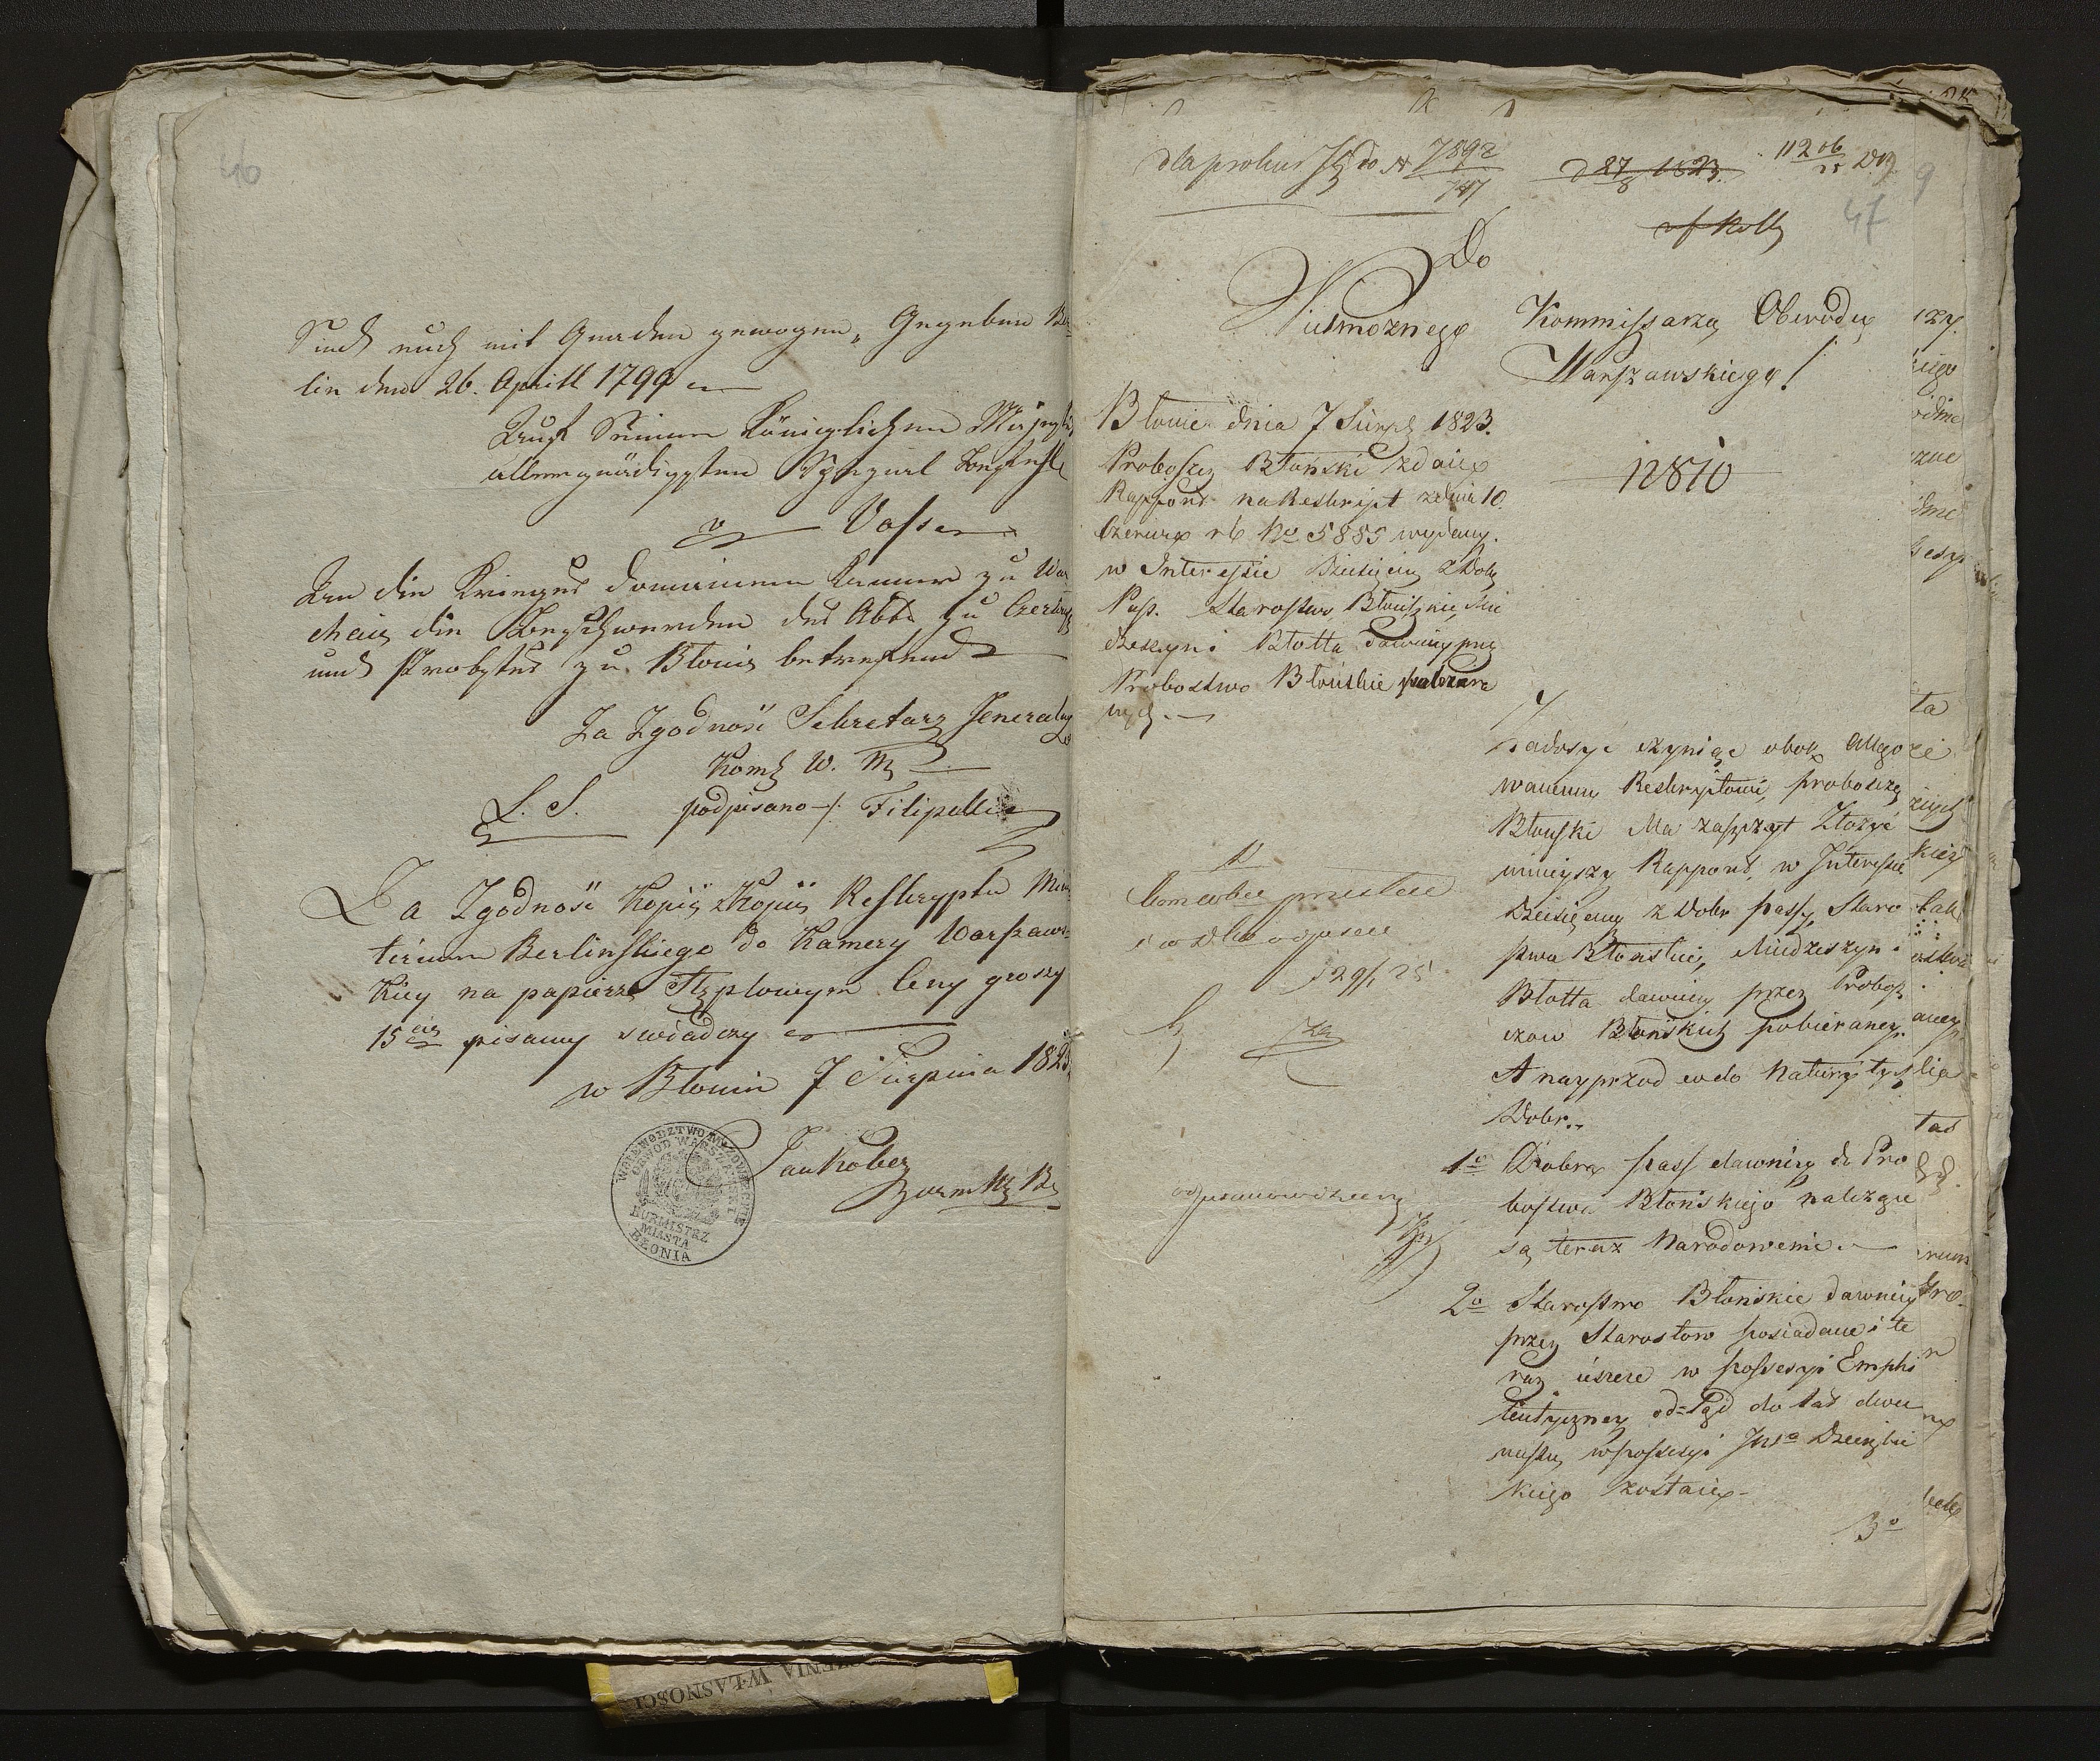 46
Sind euch mit Gnaden gewogen„ Gegeben Ber=
lin den 26. Aprill 1799
Auf Seiner Königlichen Majestät
allergnädigsten Special Befehl
Voss
An die Krieges Domainen Kammer zu War
die Beschwerden des Abts zu
und Probstes zu Błonie betreffend
Za Zgodność Sekretarz Jeneralny
Kom. W. M.
L. S. podpisano -/. Filipecki
Za Zgodność Kopii z Kopii Reskryptu Minis
terium Berlinskiego do Kamery Warszaws=
kiey na papierze Stęplowym Ceny groszy
15cie pisany swiadczy
w Błoniu 7 Sierpnia 1823
Jan Kober
Burm. M. B.
WOJEWODZTWO MAZOWIECKIE
OBWOD WARSZAWSKI
BURMISTRZ
MIASTA
BŁONIA
WŁASNOŚCI
do N 7892
747
1823.
11206
9
47
Do
Wielmożnego Kommissarza Obwodu
Warszawskiego!
Błonie dnia 7 Sierp. 1823.
Proboszcz Błoński zdaie
Rapport na Reskript z dnia 10.
Czerwca rb No 5885 wydany.
w Interessie Dziesięciny z Dobr
Pass. Starostwa Błońskie, Mie
dzeszyn i Błotta dawniey przez
Probostwo Błońskie
12810
Zadosyć czyniąc obok allego
wanemu Reskryptowi, proboszcz
Błoński Ma zaszczyt Złożyć
ninieyszy Rapport, w Interessie
Dziesięciny z Dobr Passy, Staro
stwa Błońskie, Miedzeszyn i
Błotta dawniey przez Probosz
czow Błońskich pobieraney.
A nayprzod co do Natury tych
Dobr.
1o Dobra Pass dawniey do Pro
bostwa Błońskiego należące
są teraz Narodowemi.
2o Starostwo Błońskie dawniey
przez Starostow posiadane i te
raz ieszcze w possessyi Emphi
teutyczney od Rządu do lat dwu
nastu, w possessyi JWo
kiego zostaie
3o